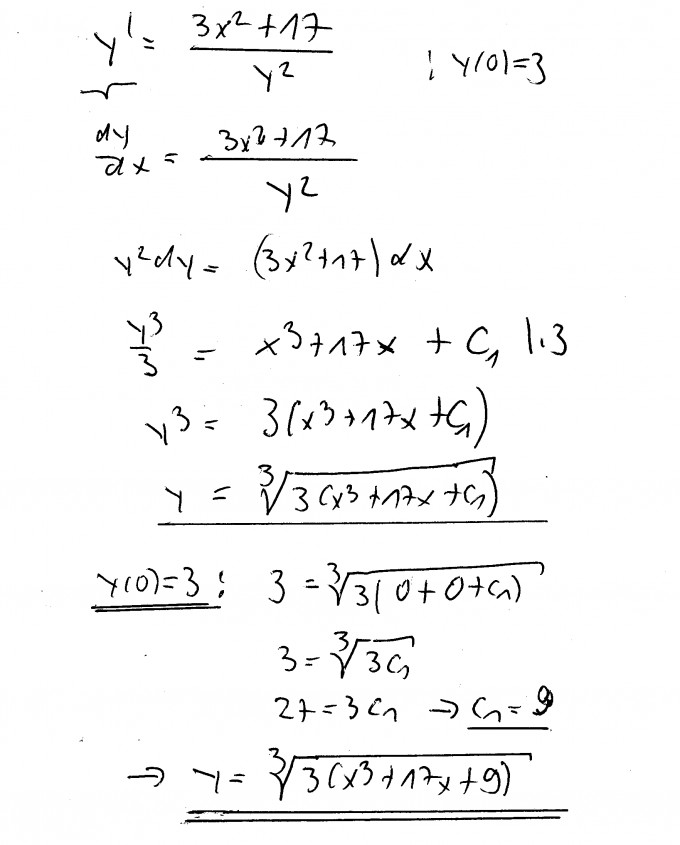 y' = (3x²+17)/y² ; y(0)=3
dy/dx = (3x²+17)/y²
y²dy = (3x²+17)dx
y³/3 = x³+17x + C₁ |·3
y³ = 3(x³+17x+C₁)
y = ∛(3(x³+17x+C₁))
y(0)=3: 3 = ∛(3(0+0+C₁))
3 = ∛(3C₁)
27 = 3C₁ → C₁ = 9
→ y = ∛(3(x³+17x+9))